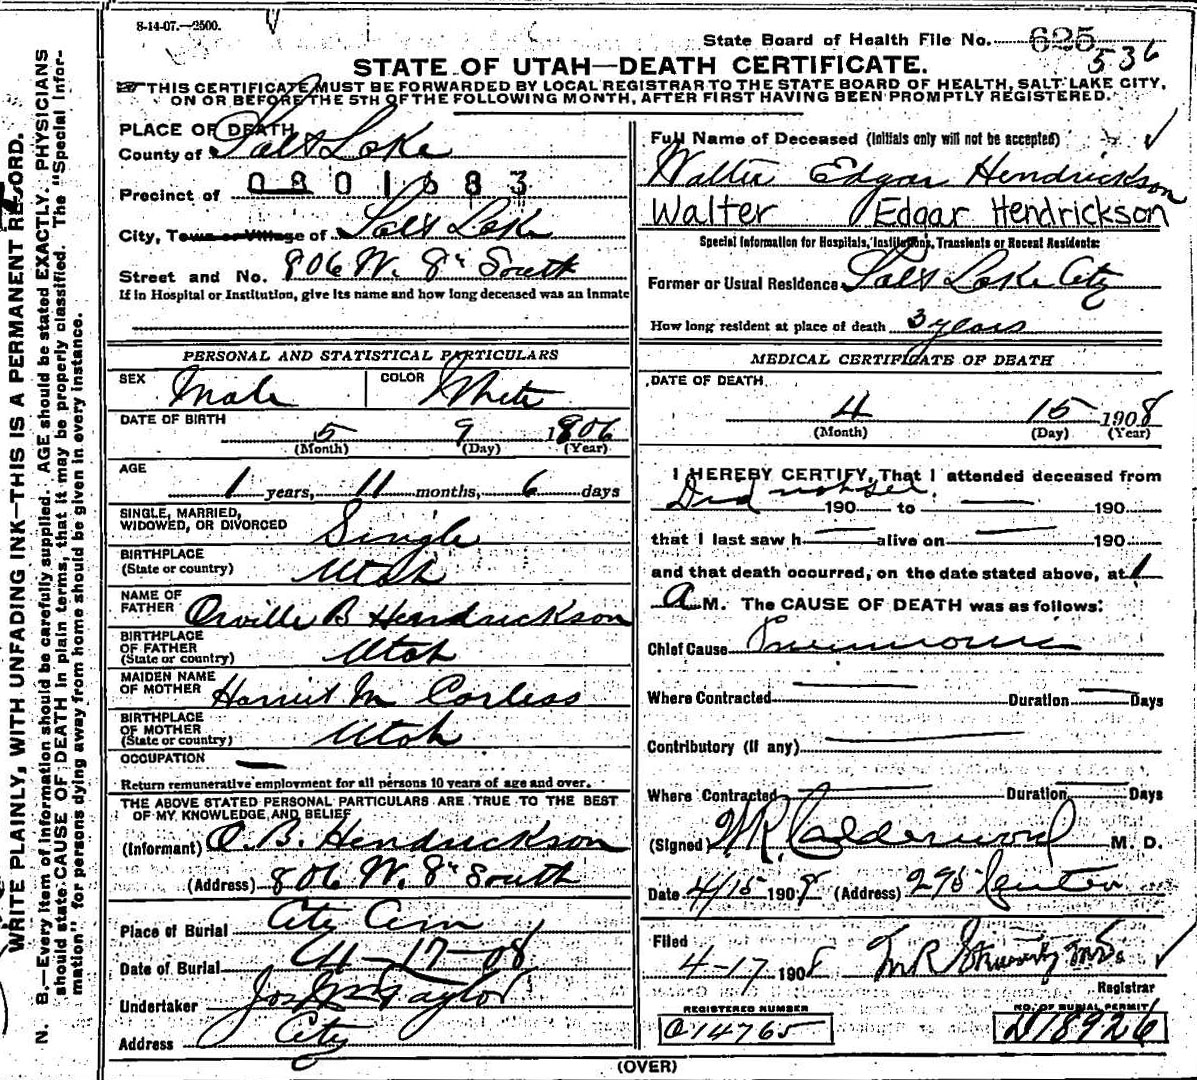 8-14-07.—2500.
State Board of Health File No. 625
536
STATE OF UTAH—DEATH CERTIFICATE.
THIS CERTIFICATE MUST BE FORWARDED BY LOCAL REGISTRAR TO THE STATE BOARD OF HEALTH, SALT LAKE CITY,
ON OR BEFORE THE 5TH OF THE FOLLOWING MONTH, AFTER FIRST HAVING BEEN PROMPTLY REGISTERED.
WRITE PLAINLY, WITH UNFADING INK—THIS IS A PERMANENT RECORD.
N. B.—Every item of information should be carefully supplied. AGE should be stated EXACTLY. PHYSICIANS
should state CAUSE OF DEATH in plain terms, that it may be properly classified. The "Special Infor-
mation" for persons dying away from home should be given in every instance.
PLACE OF DEATH
County of Salt Lake
Precinct of 0801683
City, Town or Village of Salt Lake
Street and No. 806 W. 8th South
If in Hospital or Institution, give its name and how long deceased was an inmate
PERSONAL AND STATISTICAL PARTICULARS
SEX Male COLOR White
DATE OF BIRTH
5 9 1906
(Month) (Day) (Year)
AGE
1 years, 11 months, 6 days
SINGLE, MARRIED,
WIDOWED, OR DIVORCED Single
BIRTHPLACE
(State or country) Utah
NAME OF
FATHER Orville B Hendrickson
BIRTHPLACE
OF FATHER
(State or country) Utah
MAIDEN NAME
OF MOTHER Harriet M Corless
BIRTHPLACE
OF MOTHER
(State or country) Utah
OCCUPATION —
Return remunerative employment for all persons 10 years of age and over.
THE ABOVE STATED PERSONAL PARTICULARS ARE TRUE TO THE BEST
OF MY KNOWLEDGE AND BELIEF
(Informant) O. B. Hendrickson
(Address) 806 W. 8th South
Place of Burial City Cem
Date of Burial 4-17-08
Undertaker Jos Wm Taylor
Address City
Full Name of Deceased (Initials only will not be accepted)
Walter Edgar Hendrickson
Walter Edgar Hendrickson
Special Information for Hospitals, Institutions, Transients or Recent Residents:
Former or Usual Residence Salt Lake City
How long resident at place of death 3 years
MEDICAL CERTIFICATE OF DEATH
DATE OF DEATH
4 15 1908
(Month) (Day) (Year)
I HEREBY CERTIFY, That I attended deceased from
Did not see. 190 to — 190
that I last saw h — alive on — 190
and that death occurred, on the date stated above, at 1
A M. The CAUSE OF DEATH was as follows:
Chief Cause Pneumonia
Where Contracted — Duration — Days
Contributory (if any) —
Where Contracted — Duration — Days
(Signed) W R Calderwood M. D.
Date 4/15 1908 (Address) 296 Center
Filed
4-17 1908 M R Stewart, M.D.
Registrar
REGISTERED NUMBER
014765
NO. OF BURIAL PERMIT
D18926
(OVER)